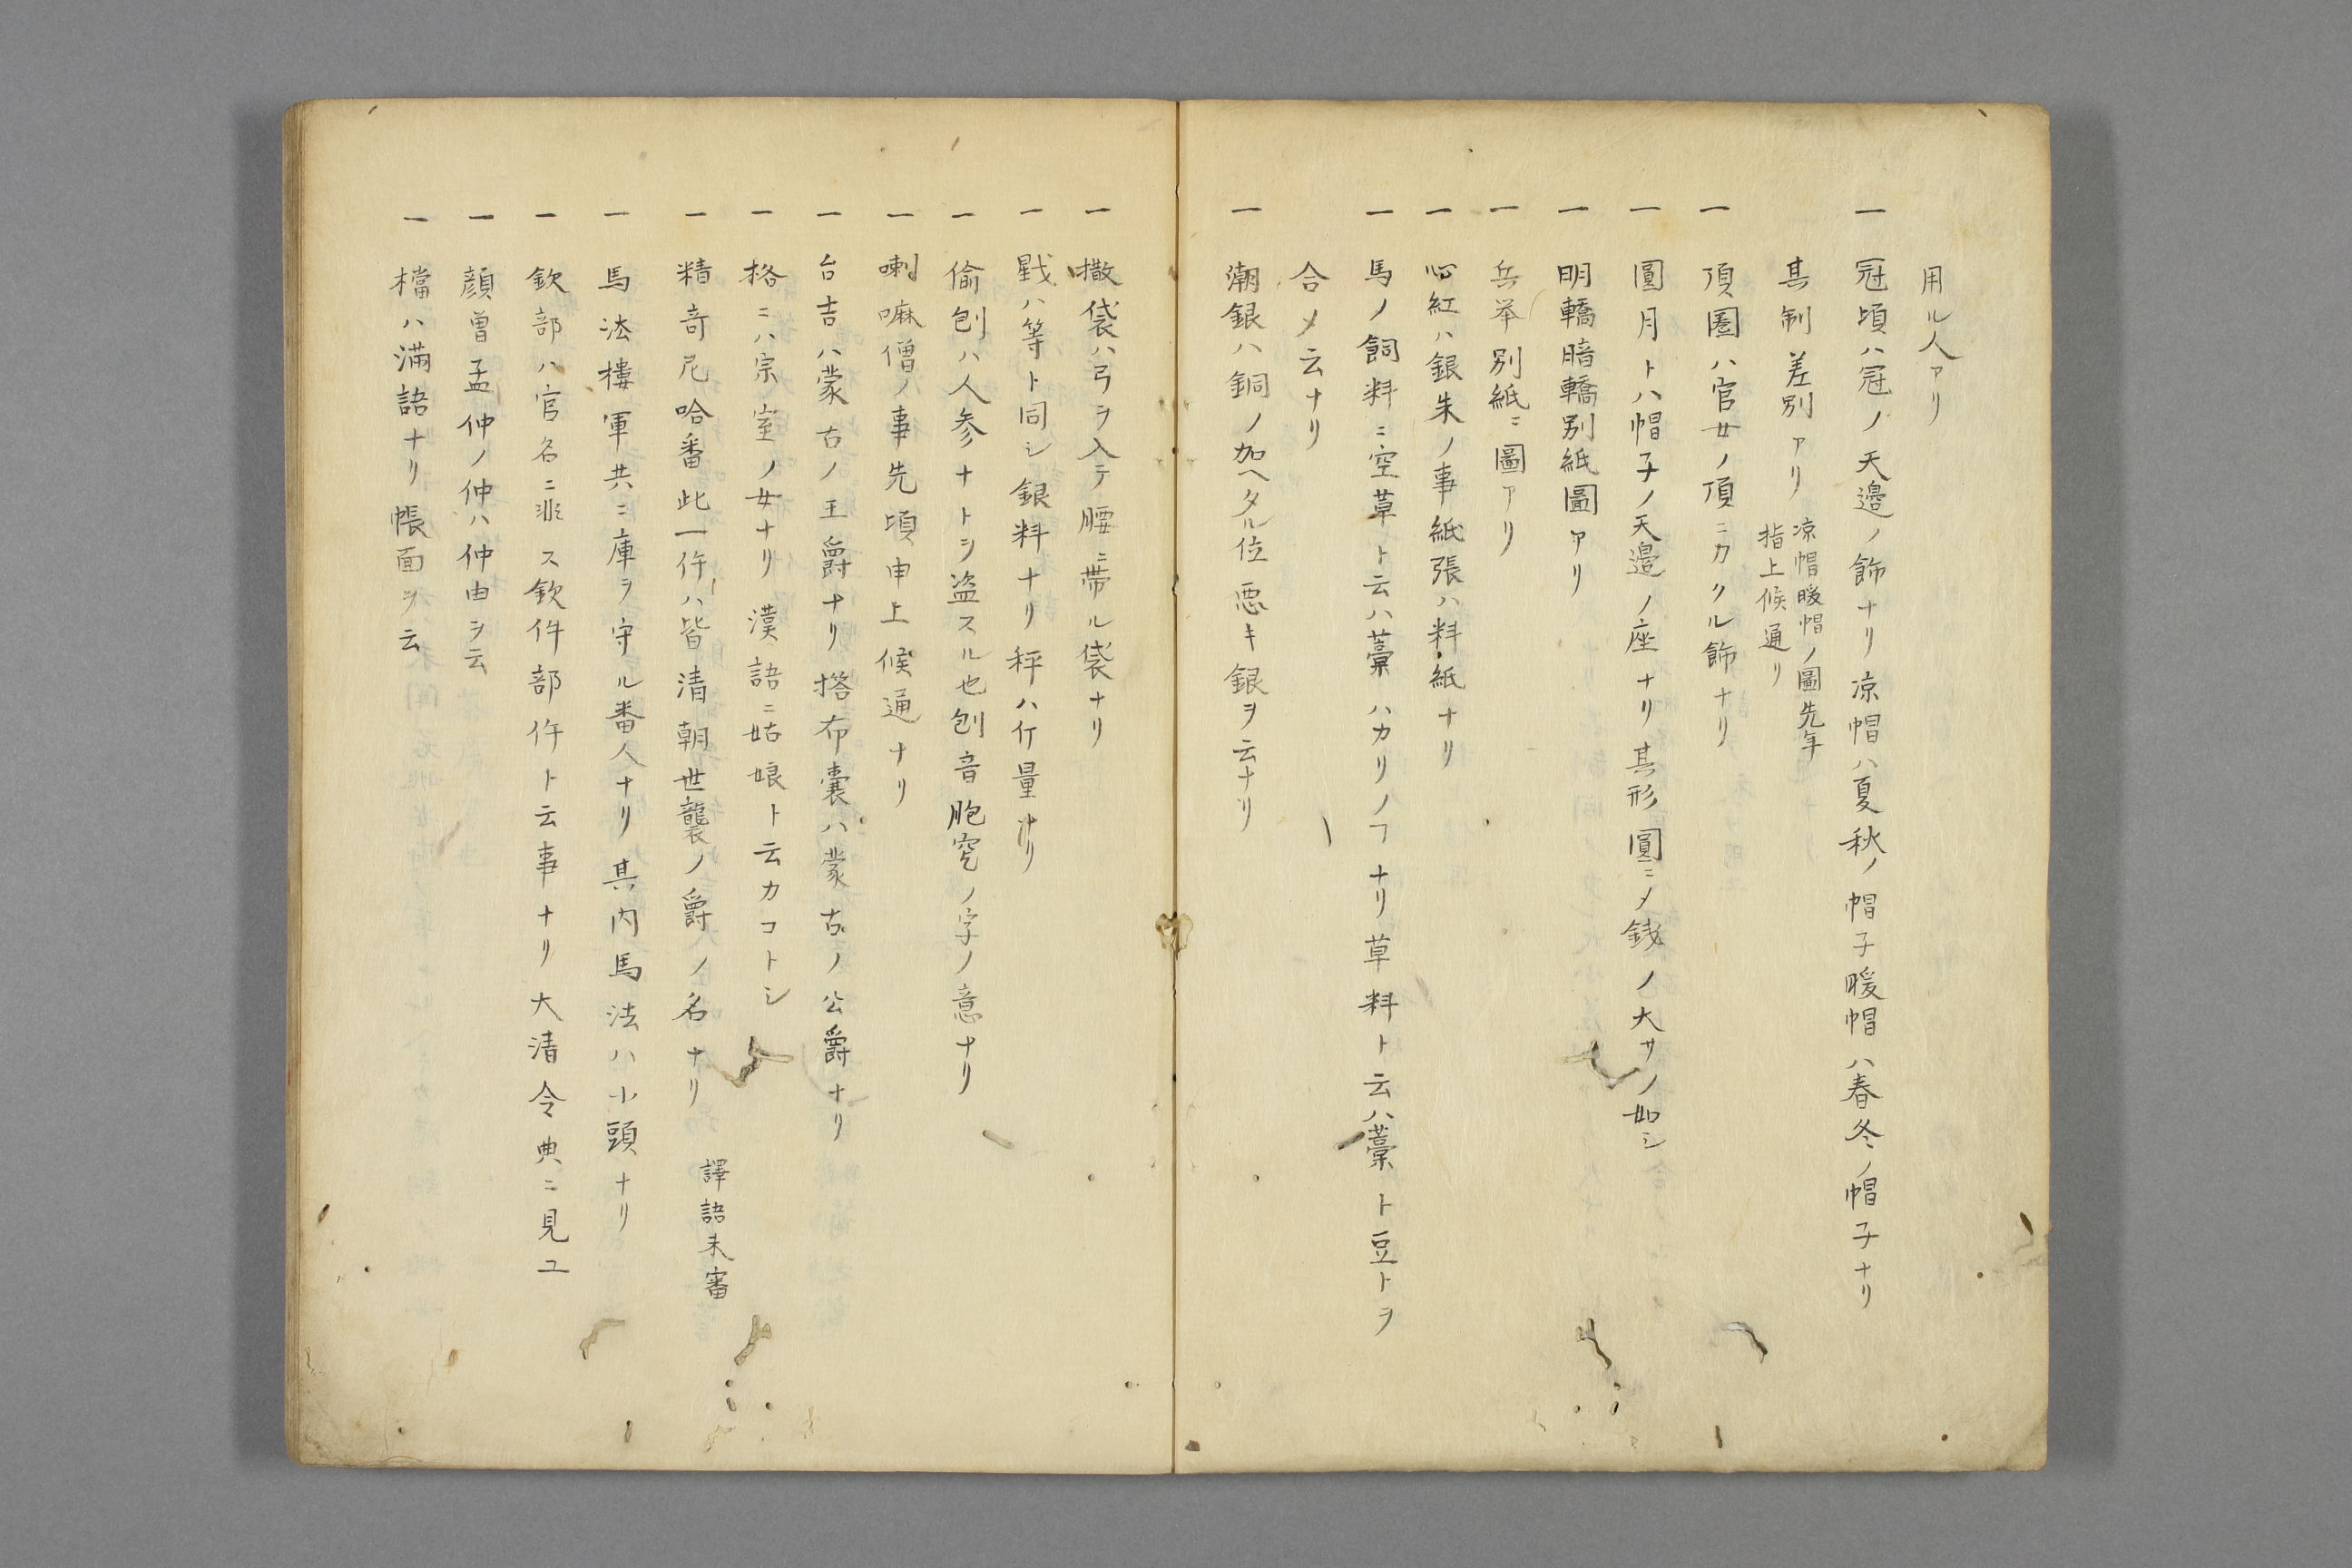 用ル人アリ
一 冠頃ハ冠ノ天邉ノ飾ナリ凉帽ハ夏秋ノ帽子暖帽ハ春冬ノ帽子ナリ
其制差別アリ
凉帽暖帽ノ圖先年
指上候通リ
一 頂圏ハ官女ノ頂ニカクル飾ナリ
一 圓月トハ帽子ノ天邉ノ座ナリ其形圓ニメ銭ノ大サノ如シ
一 明轎暗轎別紙圖アリ
一 兵挙別紙ニ圖アリ
一 心紅ハ銀朱ノ事紙張ハ料紙ナリ
一 馬ノ飼料ニ空草ト云ハ藁ハカリノヿナリ草料ト云ハ藁ト豆トヲ
合メ云ナリ
一 潮銀ハ銅ノ加ヘタル位悪キ銀ヲ云ナリ
一 撒袋ハ弓ヲ入テ腰ニ帯ル袋ナリ
一 戥ハ等ト同シ銀料ナリ秤ハ斤量ナリ
一 偷刨ハ人参ナトヲ盗スル也刨音胞窂ノ字ノ意ナリ
一 喇嘛僧ノ事先頃申上候通ナリ
一 台吉ハ蒙古ノ王爵ナリ撘布囊ハ蒙古ノ公爵ナリ
一 格ニハ宗室ノ女ナリ漢語ニ姑娘ト云カコトシ
一 精奇尼哈番此一件ハ皆清朝世襲ノ爵ノ名ナリ 譯語未審
一 馬法樓軍共ニ庫ヲ守ル番人ナリ其内馬法ハ小頭ナリ
一 欽部ハ官名ニ非ス欽件部件ト云事ナリ大清令典ニ見ユ
一 顔曽孟仲ノ仲ハ仲由ヲ云
一 檔ハ滿語ナリ帳面ヲ云